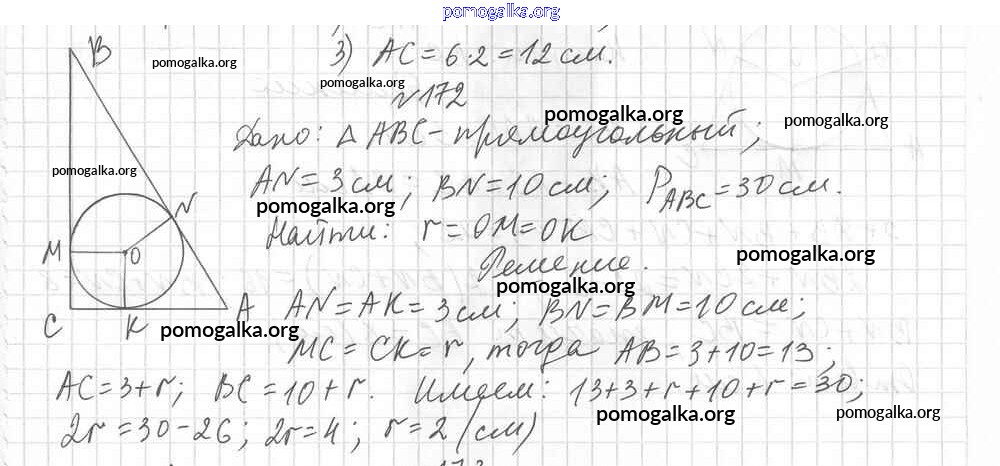 pomogalka.org
3) AC = 6·2 = 12 см.
pomogalka.org
№172
pomogalka.org
pomogalka.org
Дано: △ ABC – прямоугольный;
pomogalka.org
AN = 3 см; BN = 10 см; P_ABC = 30 см.
pomogalka.org
Найти: r = OM = OK
pomogalka.org
Решение.
pomogalka.org
AN = AK = 3 см; BN = BM = 10 см;
pomogalka.org
MC = CK = r, тогда AB = 3 + 10 = 13;
AC = 3 + r; BC = 10 + r. Имеем: 13 + 3 + r + 10 + r = 30;
pomogalka.org
pomogalka.org
2r = 30 – 26; 2r = 4; r = 2 (см)
B
N
M
O
C
K
A